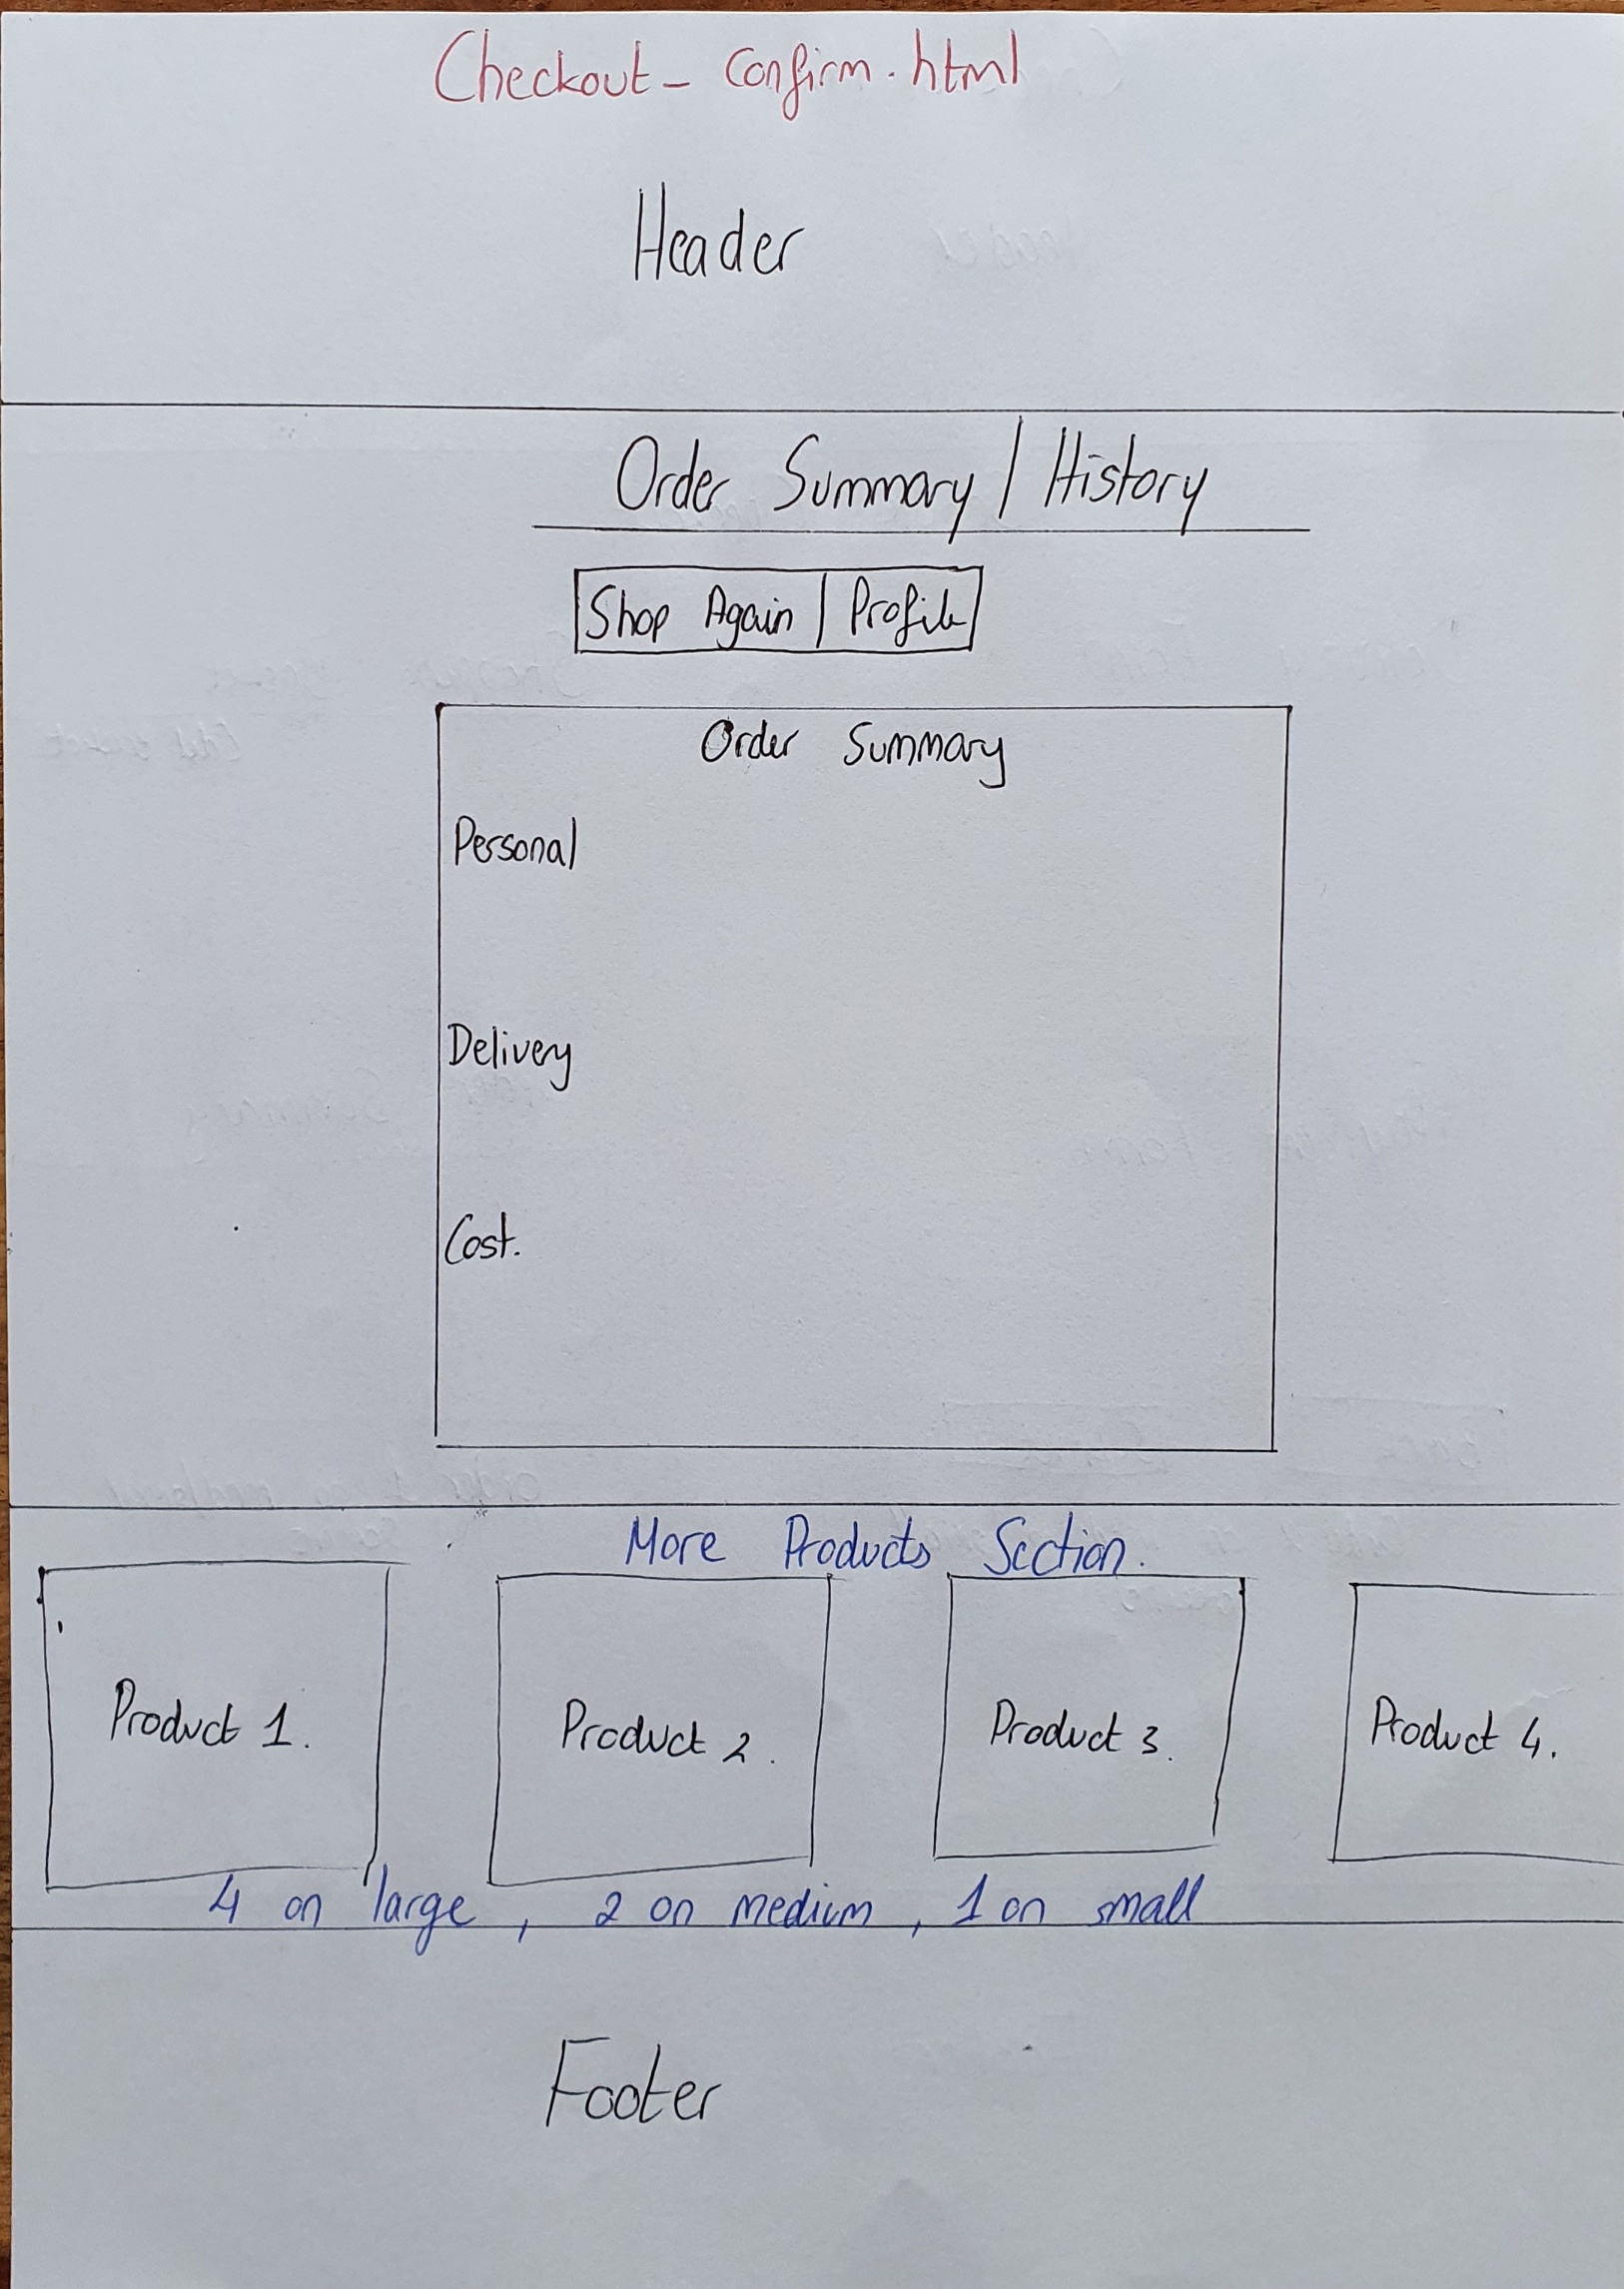 Checkout_ Confirm.html
Header
Order Summary / History
Shop Again | Profile
Order Summary
Personal
Delivery
Cost.
More Products Section.
Product 1.
Product 2.
Product 3.
Product 4.
4 on large, 2 on medium, 1 on small
Footer